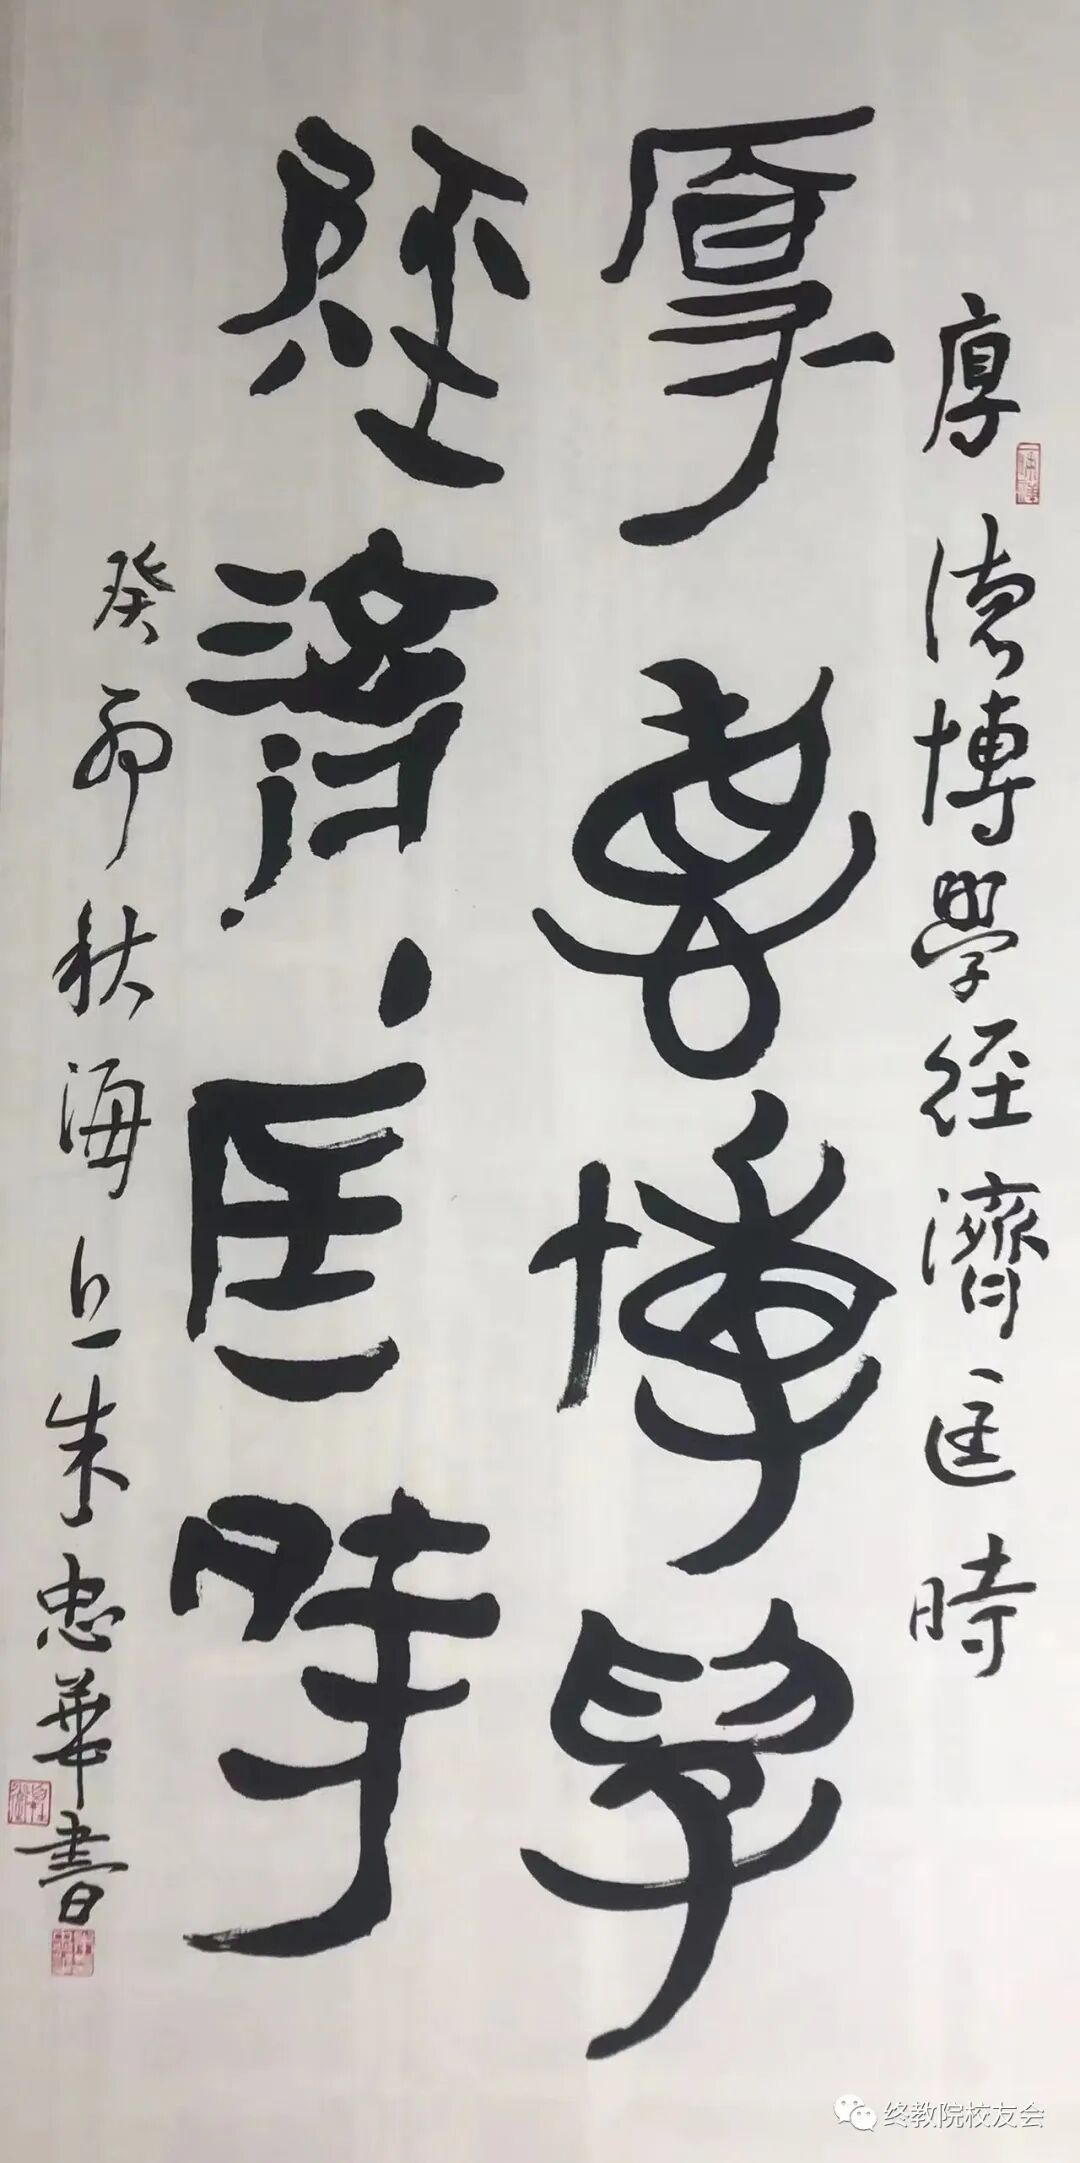 厚德博學經濟匡時
厚悳博學
經濟匡時
癸卯秋海上朱忠華書
终教院校友会